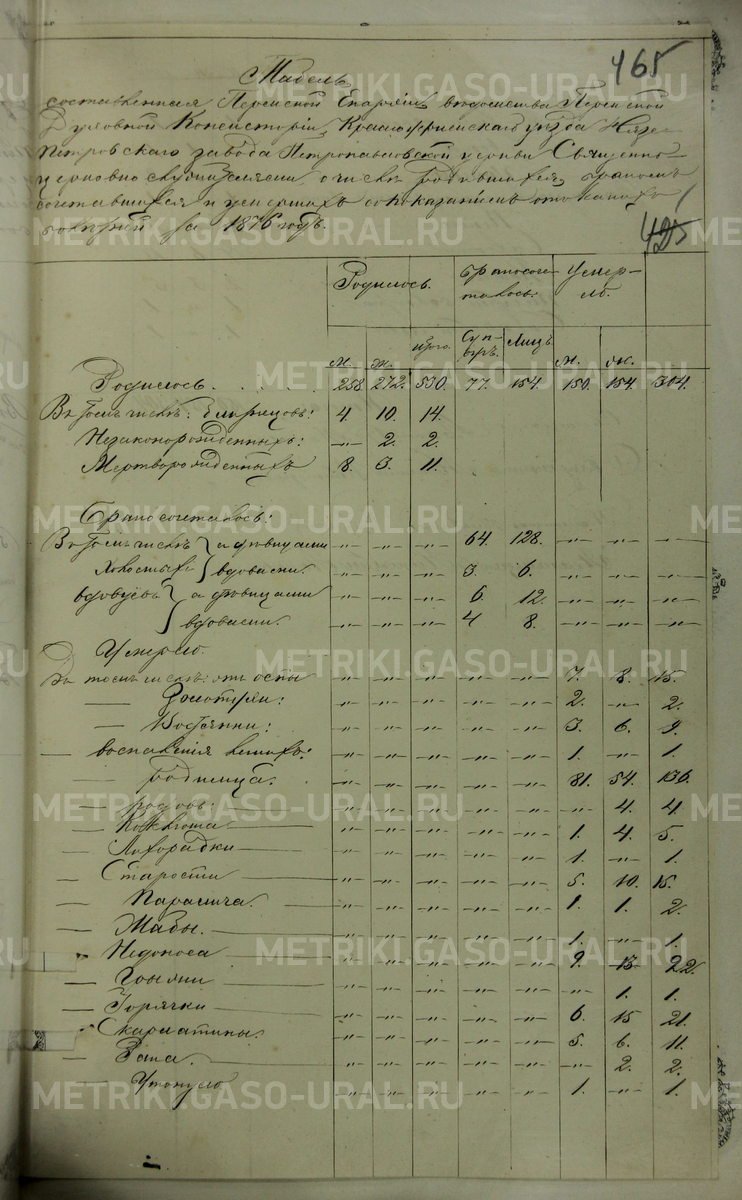 465
Табель
составленная Пермской Епархіи, ведомства Пермской
Духовной Консисторіи, Красноуфимскаго уѣзда Нязе-
петровскаго завода Петропавловской церкви Священно-
церковно служителями о числѣ родившихся, бракомъ
сочетавшихся и умершихъ съ показаніемъ отъ какихъ
болѣзней за 1876 годъ.
425
Родилось. Бракосоче- Умер-
талось. ло.
М. Ж. итого. Суп- Лицъ М. Ж.
ругъ.
Родилось. . . . . 258. 272. 530. 77. 154. 150. 154. 304.
Въ томъ числѣ: близнецовъ: 4. 10. 14.
Незаконорожденныхъ: -„- 2. 2.
Мертворожденныхъ 8. 3. 11.
Бракосочеталось:
Въ томъ числѣ съ дѣвицами -„- -„- -„- 64. 128. -„- -„- -„-
холостыхъ вдовами. -„- -„- -„- 3. 6. -„- -„- -„-
вдовцевъ съ дѣвицами -„- -„- -„- 6. 12. -„- -„- -„-
вдовами. -„- -„- -„- 4 8. -„- -„- -„-
Умерло
Въ томъ числѣ: отъ оспы -„- -„- -„- -„- -„- 7. 8. 15.
— Золотухи: -„- -„- -„- -„- -„- 2. -„- 2.
— Водянки: -„- -„- -„- -„- -„- 3. 6. 9.
— воспаленія -„- -„- -„- -„- -„- 1. -„- 1.
— Родимца. -„- -„- -„- -„- -„- 81. 54. 136.
— родовъ: -„- -„- -„- -„- -„- -„- 4. 4.
— Коклюша -„- -„- -„- -„- -„- 1. 4. 5.
— Лихорадки -„- -„- -„- -„- -„- 1. -„- 1.
— Старости -„- -„- -„- -„- -„- 5. 10. 15.
— Паралича. -„- -„- -„- -„- -„- 1. 1. 2.
— Жабы. -„- -„- -„- -„- -„- 1. -„- 1.
— Недоноса -„- -„- -„- -„- -„- 9. 13 22.
— -„- -„- -„- -„- -„- -„- 1. 1.
— Горячки -„- -„- -„- -„- -„- 6. 15 21.
— Скарлатины. -„- -„- -„- -„- -„- 5. 6. 11.
— -„- -„- -„- -„- -„- -„- 2. 2.
— Утонуло -„- -„- -„- -„- -„- 1. -„- 1.
METRIKI.GASO-URAL.RU